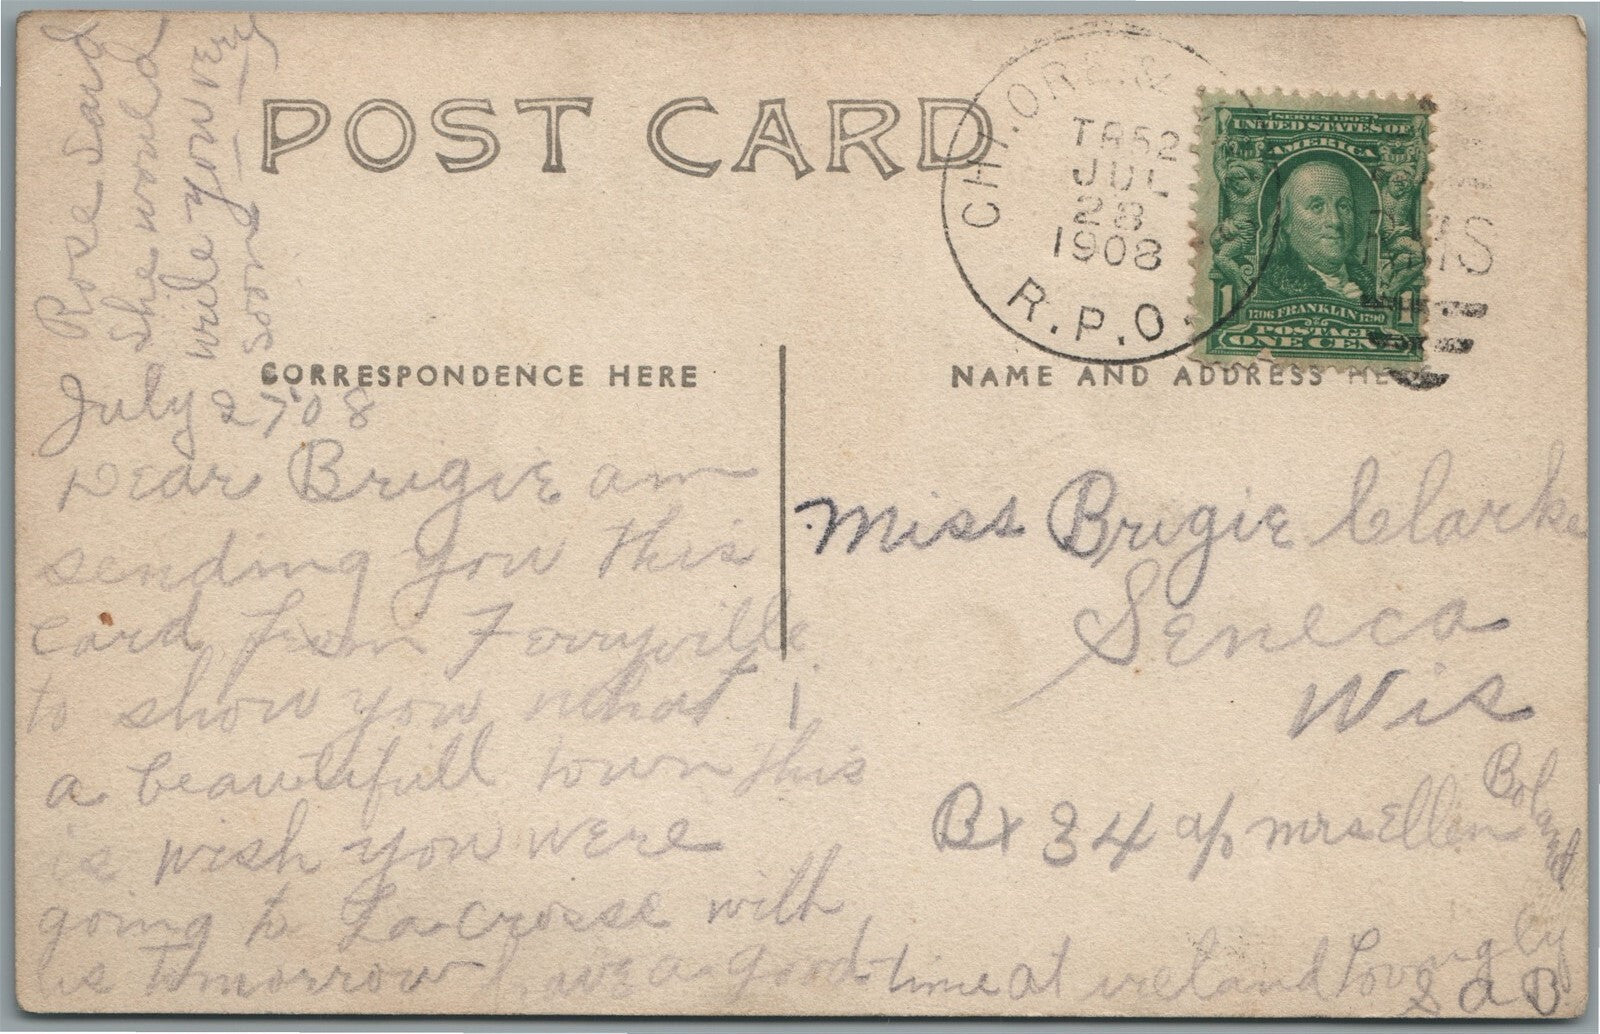 Rose Said
She would
write you very
soon
POST CARD
CHI. ORE. &
TR 52
JUL
28
1908
R.P.O.
RMS
SERIES 1902
UNITED STATES OF
AMERICA
1 1
1706 FRANKLIN 1790
POSTAGE
ONE CENT
CORRESPONDENCE HERE
July 27 '08
Dear Brigie am
sending you this
card from Ferryville
to show you what
a beautifull town this
is wish you were
going to La Crosse with
us Tomorrow have a good time at ireland Lovingly
S a B
NAME AND ADDRESS HERE
Miss Brigie Clarke
Seneca
Wis
Bx 34 c/o mrs Ellen Boland